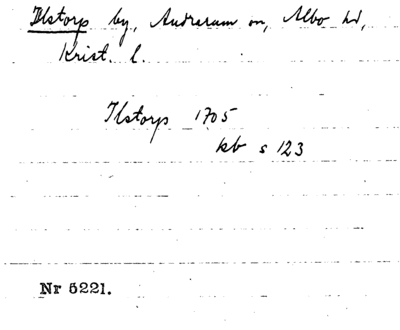 Ilstorp by, Andrarum sn, Albo hd,
Krist. l.
Ilstorp 1705
kb s 123
Nr 5221.